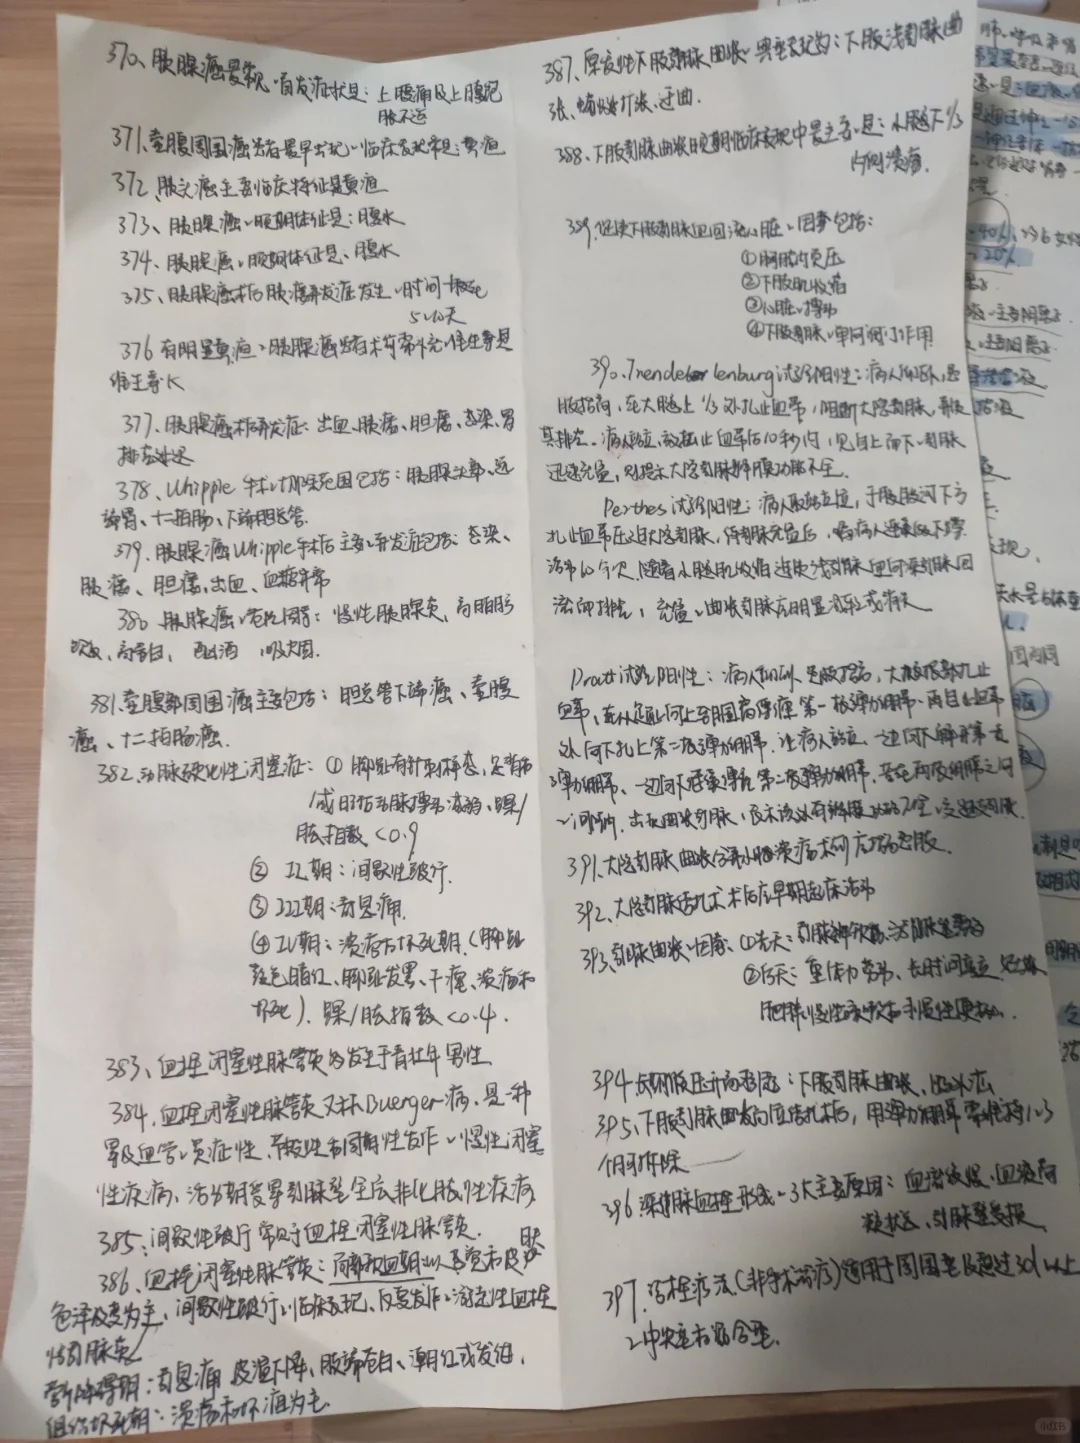 370、胰腺癌最常见的首发症状是：上腹痛及上腹饱
胀不适
371、壶腹周围癌患者最早出现的临床表现常是：黄疸
372、胰头癌主要临床特征是黄疸
373、胰腺癌的晚期体征是：腹水
374、胰腺癌的晚期体征是：腹水
375、胰腺癌术后胰瘘并发症发生的时间一般是
5~10天
376 有阻塞黄疸的胰腺癌患者术前需补充的维生素是
维生素K
377、胰腺癌术后并发症：出血、胰瘘、胆瘘、感染、胃
排空延迟
378、Whipple 手术切除范围包括：胰腺头部、远
端胃、十二指肠、下端胆总管.
379、胰腺癌Whipple手术后主要的并发症包括：感染、
胰瘘、胆瘘、出血、血糖异常
380、胰腺癌的危险因素：慢性胰腺炎、高脂肪
饮食、高蛋白、酗酒 吸烟.
381、壶腹部周围癌主要包括：胆总管下端癌、壶腹
癌、十二指肠癌.
382、动脉硬化性闭塞症：① 脚趾有针刺样感，足背动
或胫后动脉搏动减弱、踝/
肱指数 <0.9
② II期：间歇性跛行.
③ III期：静息痛.
④ IV期：溃疡与坏死期.（脚趾
颜色暗红、脚趾发黑、干瘪、溃疡和
坏死）. 踝/肱指数<0.4.
383、血栓闭塞性脉管炎好发于青壮年男性.
384、血栓闭塞性脉管炎又称Buerger病、是一种
累及血管的炎症性、节段性和周期性发作的慢性闭塞
性疾病、活动期受累动脉壁全层非化脓性疾病
385、间歇性跛行常见于血栓闭塞性脉管炎.
386、血栓闭塞性脉管炎：局部缺血期以感觉和皮肤
色泽改变为主、间歇性跛行的临床表现、反复发作的游走性血栓
性静脉炎
营养障碍期：静息痛 皮温下降、肢端苍白、潮红或发绀.
组织坏死期：溃疡和坏疽为主.
387、原发性下肢静脉曲张的典型表现为：下肢浅静脉曲
张、蜿蜒扩张、迂曲.
388、下肢静脉曲张晚期临床表现中最主要的是：小腿下1/3
内侧溃疡.
389、促使下肢静脉血回流心脏的因素包括：
①胸腔内负压
②下肢肌收缩
③心脏的搏动
④下肢静脉的单向阀门作用
390、Trendelenburg试验阳性：病人仰卧，患
肢抬高，在大腿上1/3处扎止血带，阻断大隐静脉，并使
其排空、病人站立，放松止血带后10秒内，见自上而下的静脉
迅速充盈，则提示大隐静脉瓣膜功能不全.
Perthes试验阳性：病人取站立位，于腹股沟下方
扎止血带压迫大隐静脉，待静脉充盈后，嘱病人迅速做下蹲
活动10余次，随着小腿肌收缩迫使浅静脉血向深静脉回
流而排空，充盈的曲张静脉应明显减轻或消失
Pratt试验阳性：病人仰卧 患肢抬高，大腿根部扎止
血带，在从足趾向上至腘窝缚缠第一根弹力绷带、再自止血带
处向下扎上第二根弹力绷带，让病人站立、一边向下解开第一
弹力绷带、一边向下继续缚缠第二根弹力绷带、若在两根绷带之间
的间隙内出现曲张静脉，提示该处有瓣膜功能不全的交通静脉.
391、大隐静脉曲张合并小腿溃疡术前应抬高患肢.
392、大隐静脉结扎术术后应早期起床活动
393、静脉曲张的因素、①先天：静脉瓣缺陷、浅静脉壁薄弱
②后天：重体力劳动、长时间站立、妊娠
肥胖、慢性咳嗽和习惯性便秘.
394、长期腹压升高易患：下肢静脉曲张、
395、下肢静脉曲张高位结扎术后，用弹力绷带需维持1~3
个月拆除
396、深静脉血栓形成的3大主要原因：血流缓慢、血液高
凝状态、静脉壁受损
397、溶栓疗法（非手术治疗）适用于周围型及超过3d以上
的中央型和混合型.